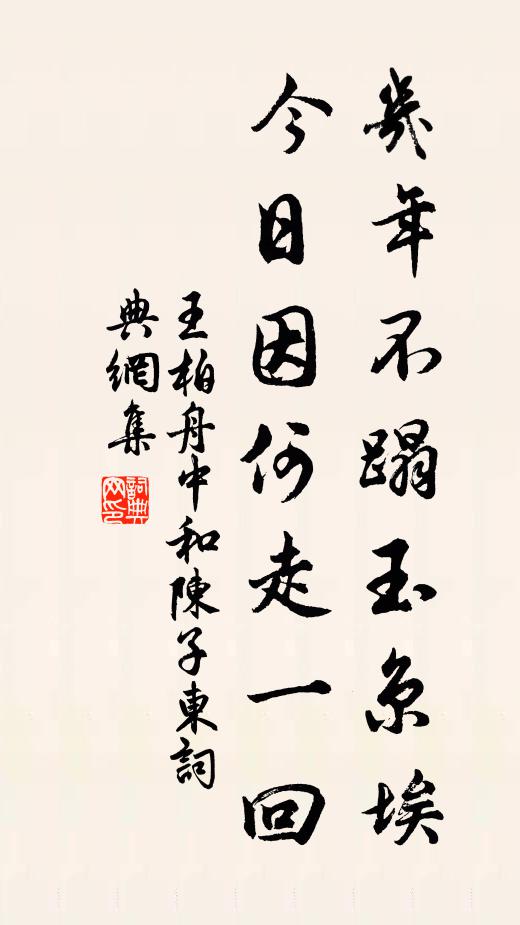 幾年不蹋玉京埃
今日因何走一回
王柏舟中和陳子東詞
典網集
詞典網印